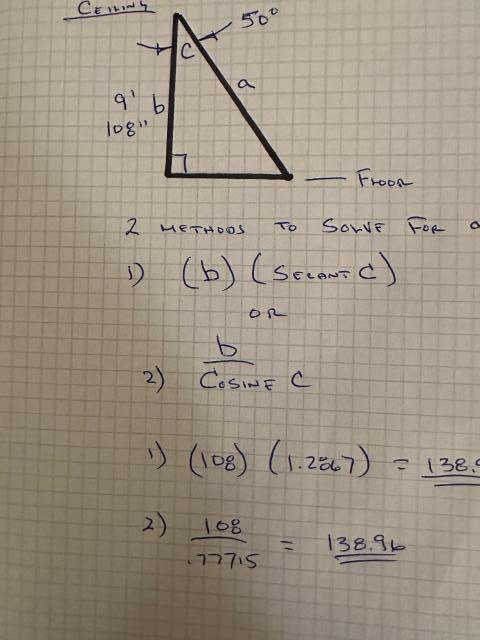 CEILING
50°
C
a
9' b
108"
FLOOR
2 METHODS TO SOLVE FOR a
1) (b) (SECANT C)
OR
b
2) COSINE C
1) (108) (1.2867) = 138.9
2) 108
.77715 = 138.96